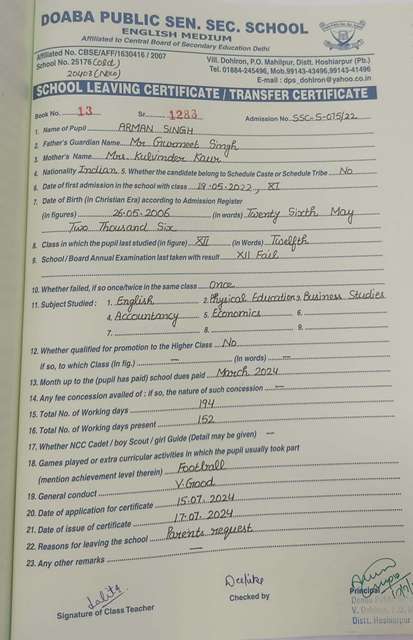 DOABA PUBLIC SEN. SEC. SCHOOL
ENGLISH MEDIUM
Affiliated to Central Board of Secondary Education Delhi
Affiliated No. CBSE/AFF/1630416 / 2007
School No. 25176 (Old)
20407 (New)
Vill. Dohlron, P.O. Mahilpur, Distt. Hoshiarpur (Pb.)
Tel. 01884-245496, Mob.99143-43496,99143-41496
E-mail : dps_dohlron@yahoo.co.in
SCHOOL LEAVING CERTIFICATE / TRANSFER CERTIFICATE
Book No. 13 Sr. 1283 Admission No. SSC-S-075/22
1. Name of Pupil ARMAN SINGH
2. Father's Guardian Name Mr Gurmeet Singh
3. Mother's Name Mrs. Kulvinder Kaur
4. Nationality Indian 5. Whether the candidate belong to Schedule Caste or Schedule Tribe No
6. Date of first admission in the school with class 19.05.2022, XI
7. Date of Birth (in Christian Era) according to Admission Register
(in figures) 26.05.2006 (in words) Twenty Sixth May
Two Thousand Six
8. Class in which the pupil last studied (in figure) XII (in Words) Twelfth
9. School / Board Annual Examination last taken with result XII Fail
10. Whether failed, if so once/twice in the same class Once
11. Subject Studied : 1. English 2. Physical Education 3. Business Studies
4. Accountancy 5. Economics 6.
7. 8. 9.
12. Whether qualified for promotion to the Higher Class No
if so, to which Class (In fig.) — (In words) —
13. Month up to the (pupil has paid) school dues paid March 2024
14. Any fee concession availed of : if so, the nature of such concession —
15. Total No. of Working days 194
16. Total No. of Working days present 152
17. Whether NCC Cadet / boy Scout / girl Guide (Detail may be given) —
18. Games played or extra curricular activities in which the pupil usually took part
(mention achievement level therein) Football
19. General conduct V.Good
20. Date of application for certificate 15.07.2024
21. Date of issue of certificate 17.07.2024
22. Reasons for leaving the school Parents request
23. Any other remarks —
Signature of Class Teacher
Checked by
Principal
Distt. Hoshiarpur